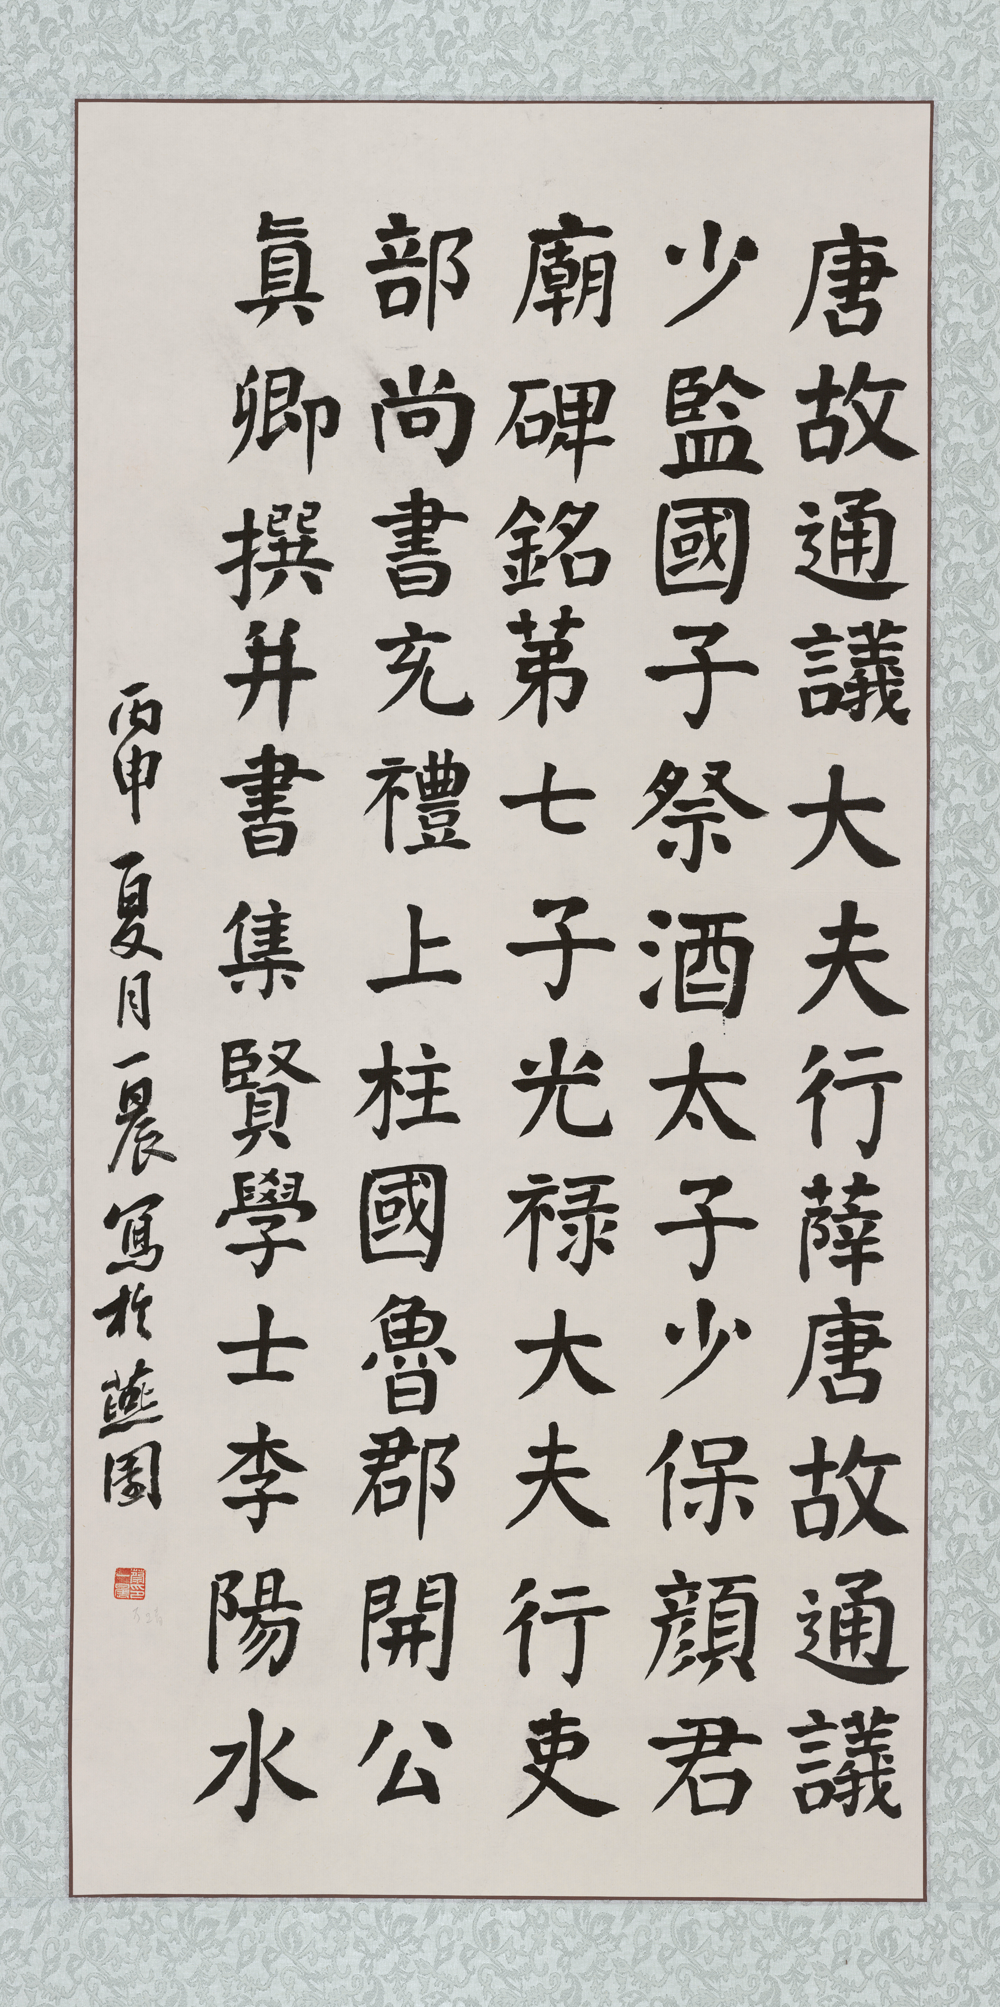 唐故通議大夫行薛唐故通議
少監國子祭酒太子少保顔君
廟碑銘第七子光禄大夫行吏
部尚書充禮上柱國魯郡開公
眞卿撰并書集賢學士李陽水
丙申夏月一晨寫於燕園